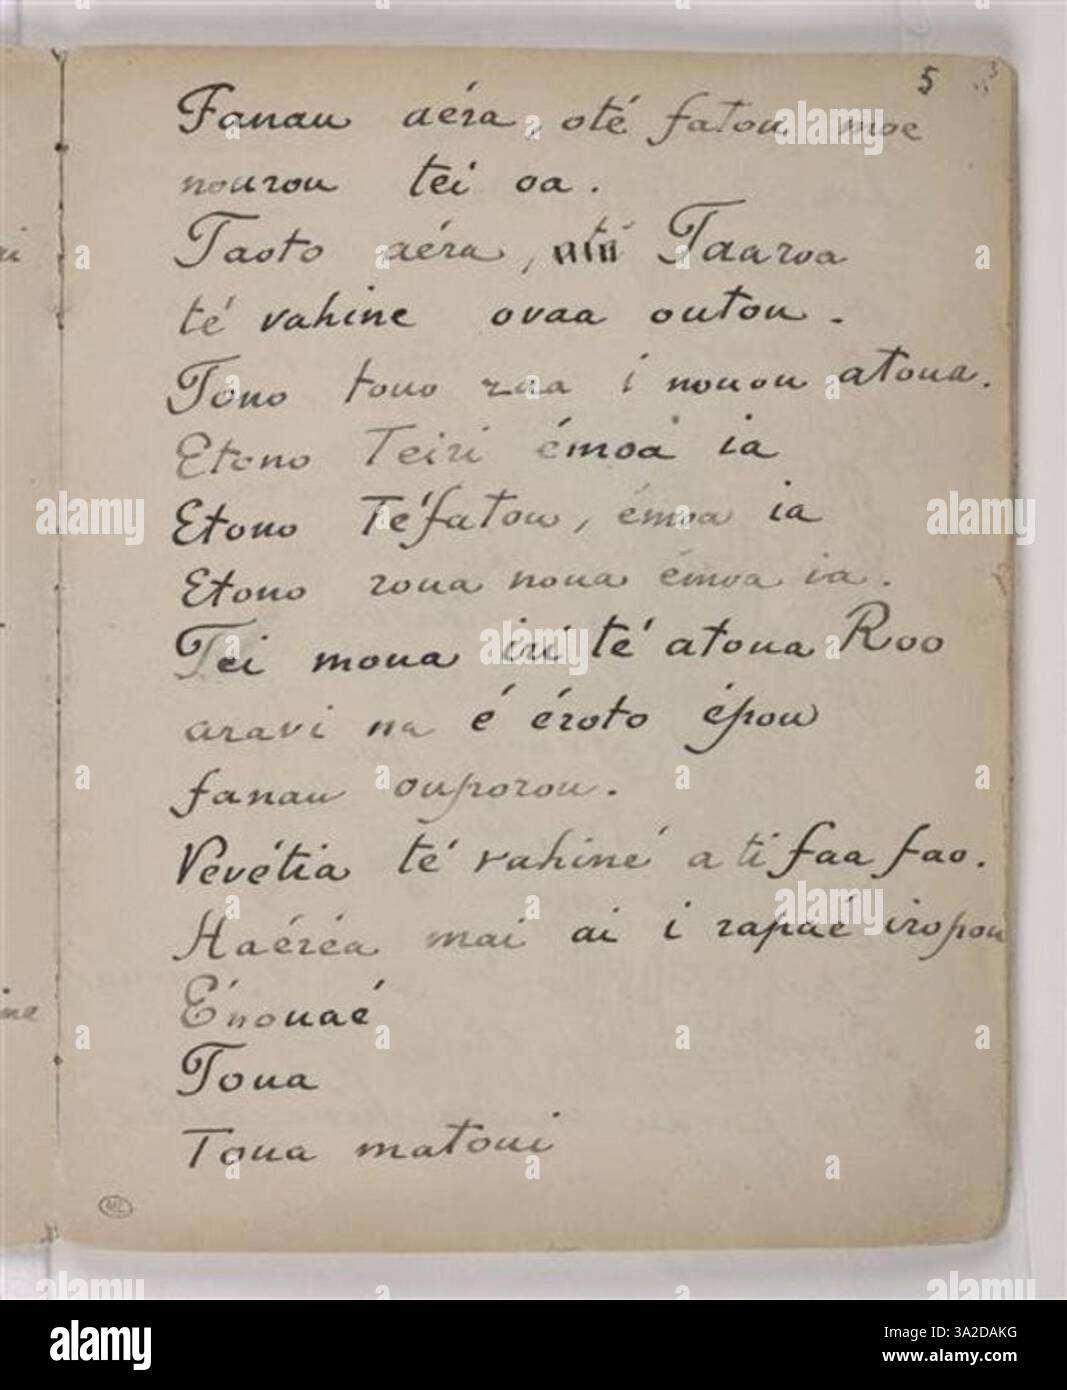 5
Fanau aéra, oté fatou moe
nourou tei oa.
Taoto aéra, até Taaroa
té vahine ovaa outou.
Tono tono raa i nouou atoua.
Etono Teiri émoa ia
Etono Téfatou, émoa ia
Etono roua noua émoa ia.
Tei moua iri té atoua Roo
aravi na é éroto épou
fanau ouporou.
Vevétia té vahiné ati faa fao.
Haéréa mai ai i rapaé iropou
Énouaé
Toua
Toua matoui
alamy
Image ID: 3A2DAKG
www.alamy.com